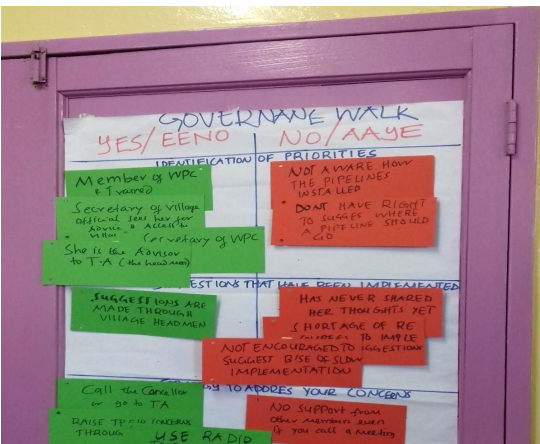 GOVERNANE WALK
YES/EENO
NO/AAYE
IDENTIFICATION OF PRIORITIES
Member of WPC
& Trained
Secretary of Village
official sees her for
Advice & Access to
Secretary of WPC
She is the Advisor
to T-A (the headmen)
NOT AWARE HOW
THE PIPELINES
INSTALLED
DONT HAVE RIGHT
TO SUGGES WHERE
A PIPELINE SHOULD
GO
ESTIONS THAT HAVE BEEN IMPLEMENTED
SUGGESTIONS ARE
MADE THROUGH
VILLAGE HEADMEN
HAS NEVER SHARED
HER THOUGHTS YET
SHORTAGE OF RE
TO IMPLE
NOT ENCOURAGED TO
SUGGEST BISE OF SLOW
IMPLEMENTATION
TO ADDRES YOUR CONCERNS
Call the Cancellor
or go to TA
RAISE
THROUG
USE RADIO
NO SUPPORT from
other members even
if you call a meeting